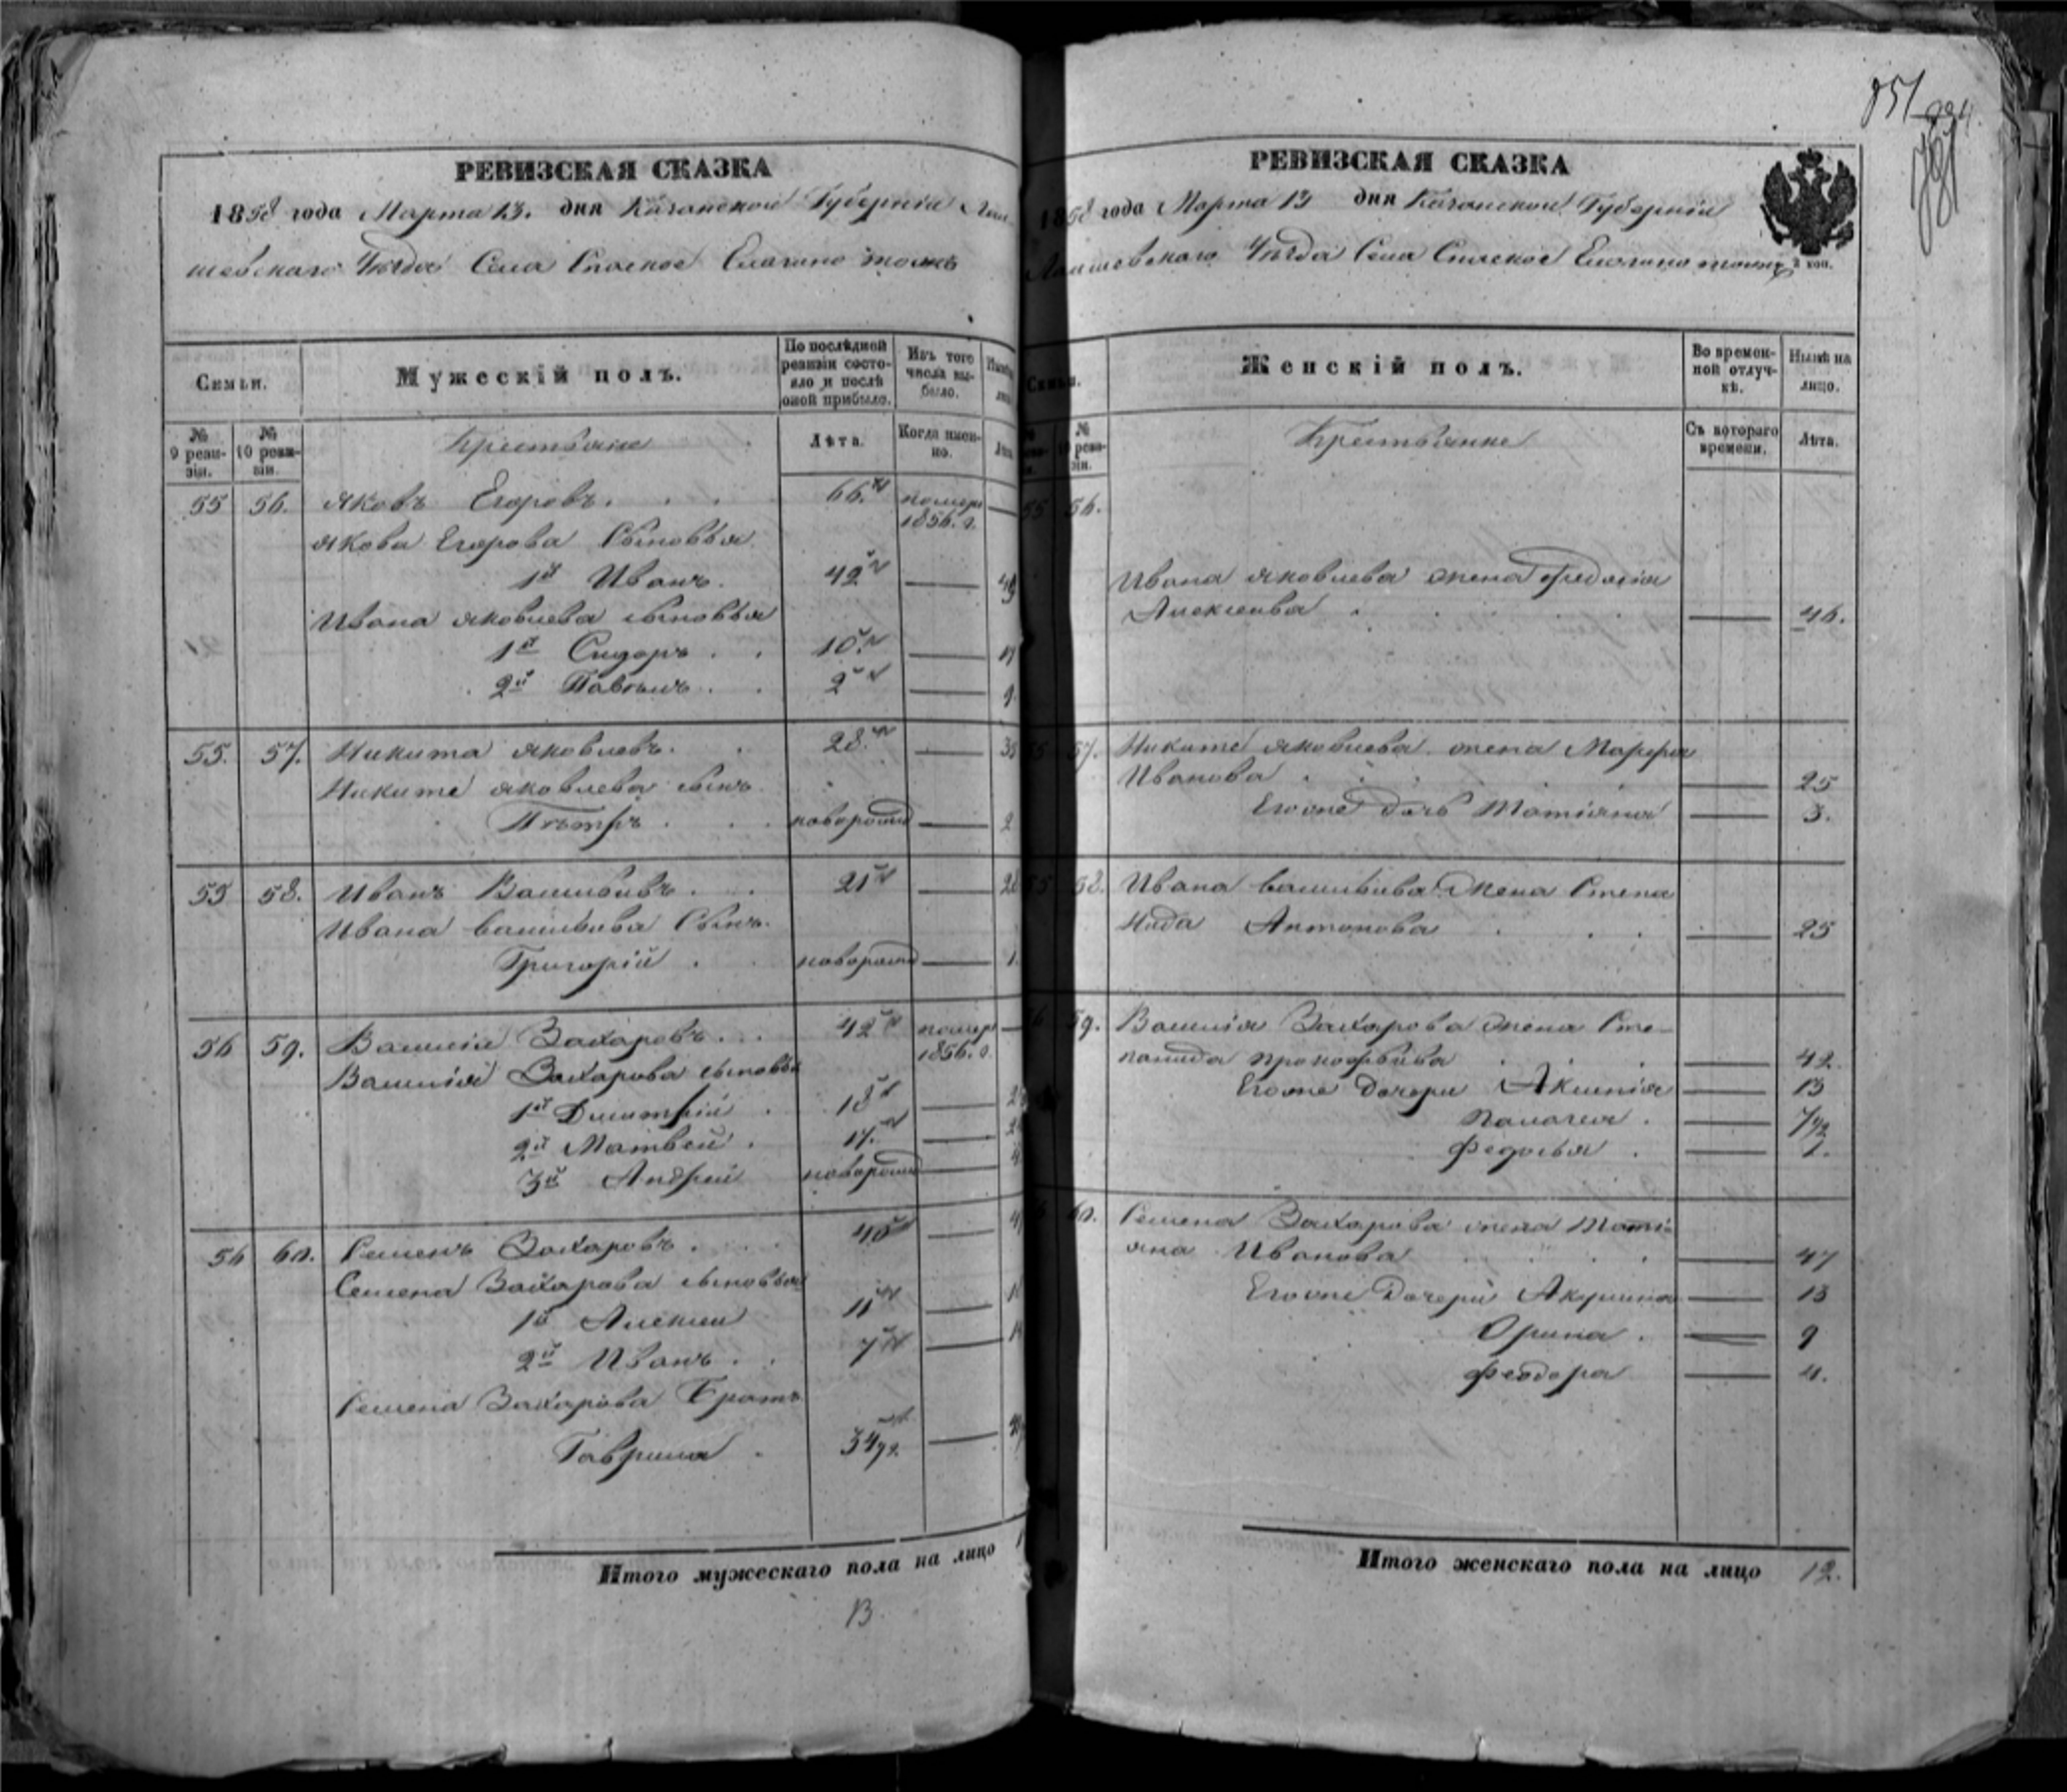 РЕВИЗСКАЯ СКАЗКА
1858 года Марта 13. дня Казанской Губерніи Лаи-
шевскаго Уѣзда Села Спаское Елагино тожъ
Семьи.
Мужескій полъ.
По послѣдней ревизіи состо-яло и послѣ оной прибыло.
Изъ того числа вы-было.
№ 9 реви-зіи.
№ 10 реви-зіи.
Крестьяне
Лѣта.
Когда имен-но.
55 56. Яковъ Егоровъ. 66. помер 1856. г.
Якова Егорова Сыновья
1й Иванъ. 42
Ивана Яковлева сыновья
1й Сидоръ 10.
2й Павелъ 2 9
55. 57. Никита Яковлевъ. 28.
Никите Яковлева сынъ
Пѣтръ новорожд 2
55 58. Иванъ Васильевъ. 21
Ивана Васильева Сынъ.
Григорій новорожд 1.
56 59. Василій Захаровъ. 42 помер 1856. г.
Василія Захарова сыновья
1й Дмитрій 18
2й Матвей 17.
3й Андрей новорожд
56 60. Семенъ Захаровъ. 40
Семена Захарова сыновья
1й Алексей 11
2й Иванъ 7
Семена Захарова Братъ
Гаврила 34
Итого мужескаго пола на лицо
13.
851
РЕВИЗСКАЯ СКАЗКА
1858 года Марта 13 дня Казанской Губерніи
Лаишевскаго Уѣзда Села Спаское Елагино тожъ
2 коп.
Семьи.
Женскій полъ.
Во времен-ной отлуч-кѣ.
Нынѣ на лицо.
№ 10 реви-зіи.
Крестьянке
Съ котораго времени.
Лѣта.
55 56.
Ивана Яковлева жена Федосія
Алексеева 46.
55 57. Никите Яковлева жена Марфа
Иванова 25
Егоже дочь Матіяна 3.
55 58. Ивана Васильева Жена Степа
нида Антонова 25
59. Василія Захарова жена Сте-
панида Прокофьева 42.
Егоже Дочери Аксинія 13
Палагея 7 1/2
Федосья 1.
60. Семена Захарова жена Мати-
яна Иванова 47
Егоже Дочери Акулина 13
Орина 9
Феодора 4.
Итого женскаго пола на лицо 12.